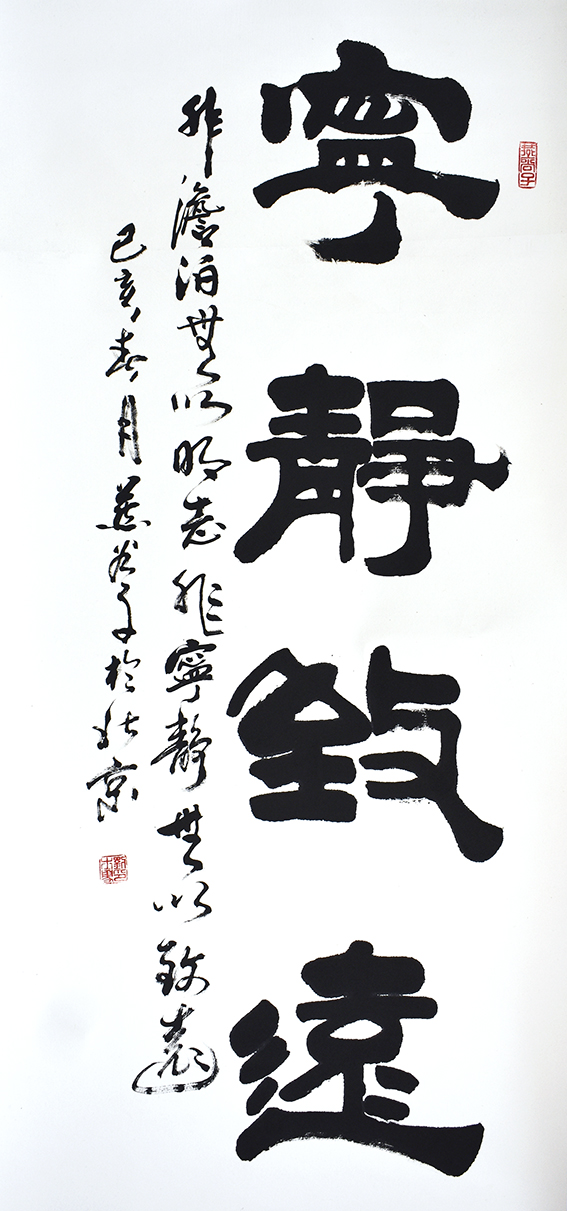 寧靜致遠
非澹泊無以明志非寧靜無以致遠
己亥春月燕谷子於北京
燕谷子